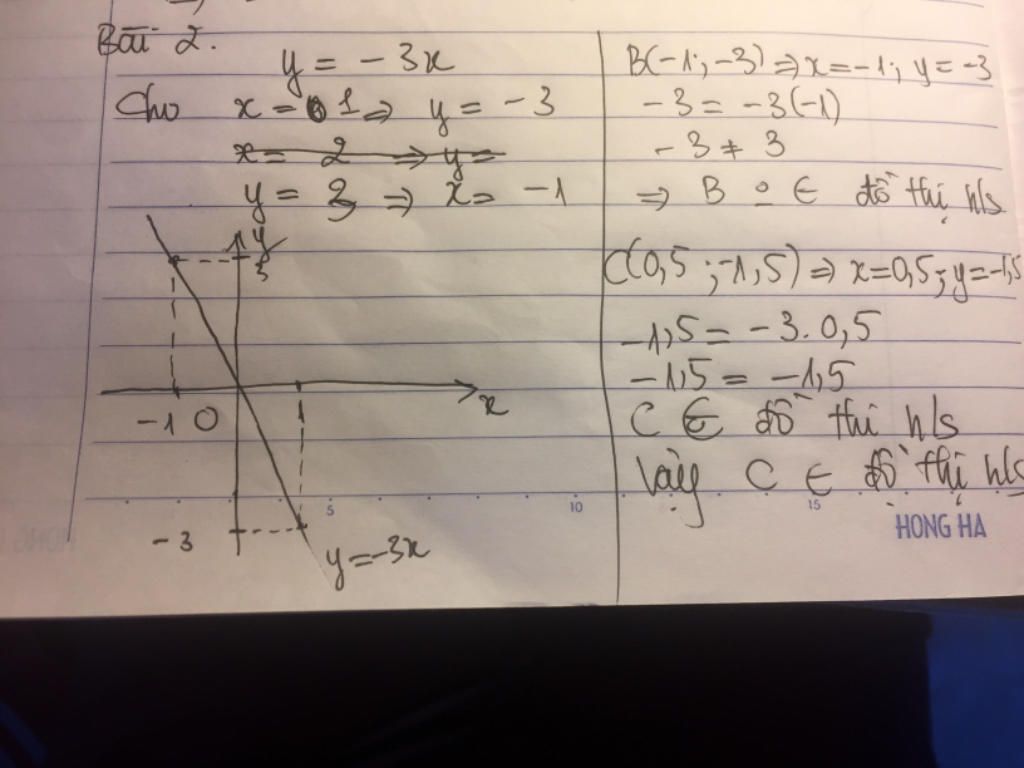 Bài 2.
y = -3x
Cho x = 1 ⇒ y = -3
x = 2 ⇒ y =
y = 3 ⇒ x = -1
y
3
-1 O 1 x
-3
y=-3x
B(-1; -3) ⇒ x=-1; y = -3
-3 = -3(-1)
-3 ≠ 3
⇒ B ∈ đồ thị h/s
C(0,5 ; -1,5) ⇒ x=0,5; y=-1,5
-1,5 = -3. 0,5
-1,5 = -1,5
C ∈ đồ thị h/s
Vậy C ∈ đồ thị h/s
5 10 15
HONG HA